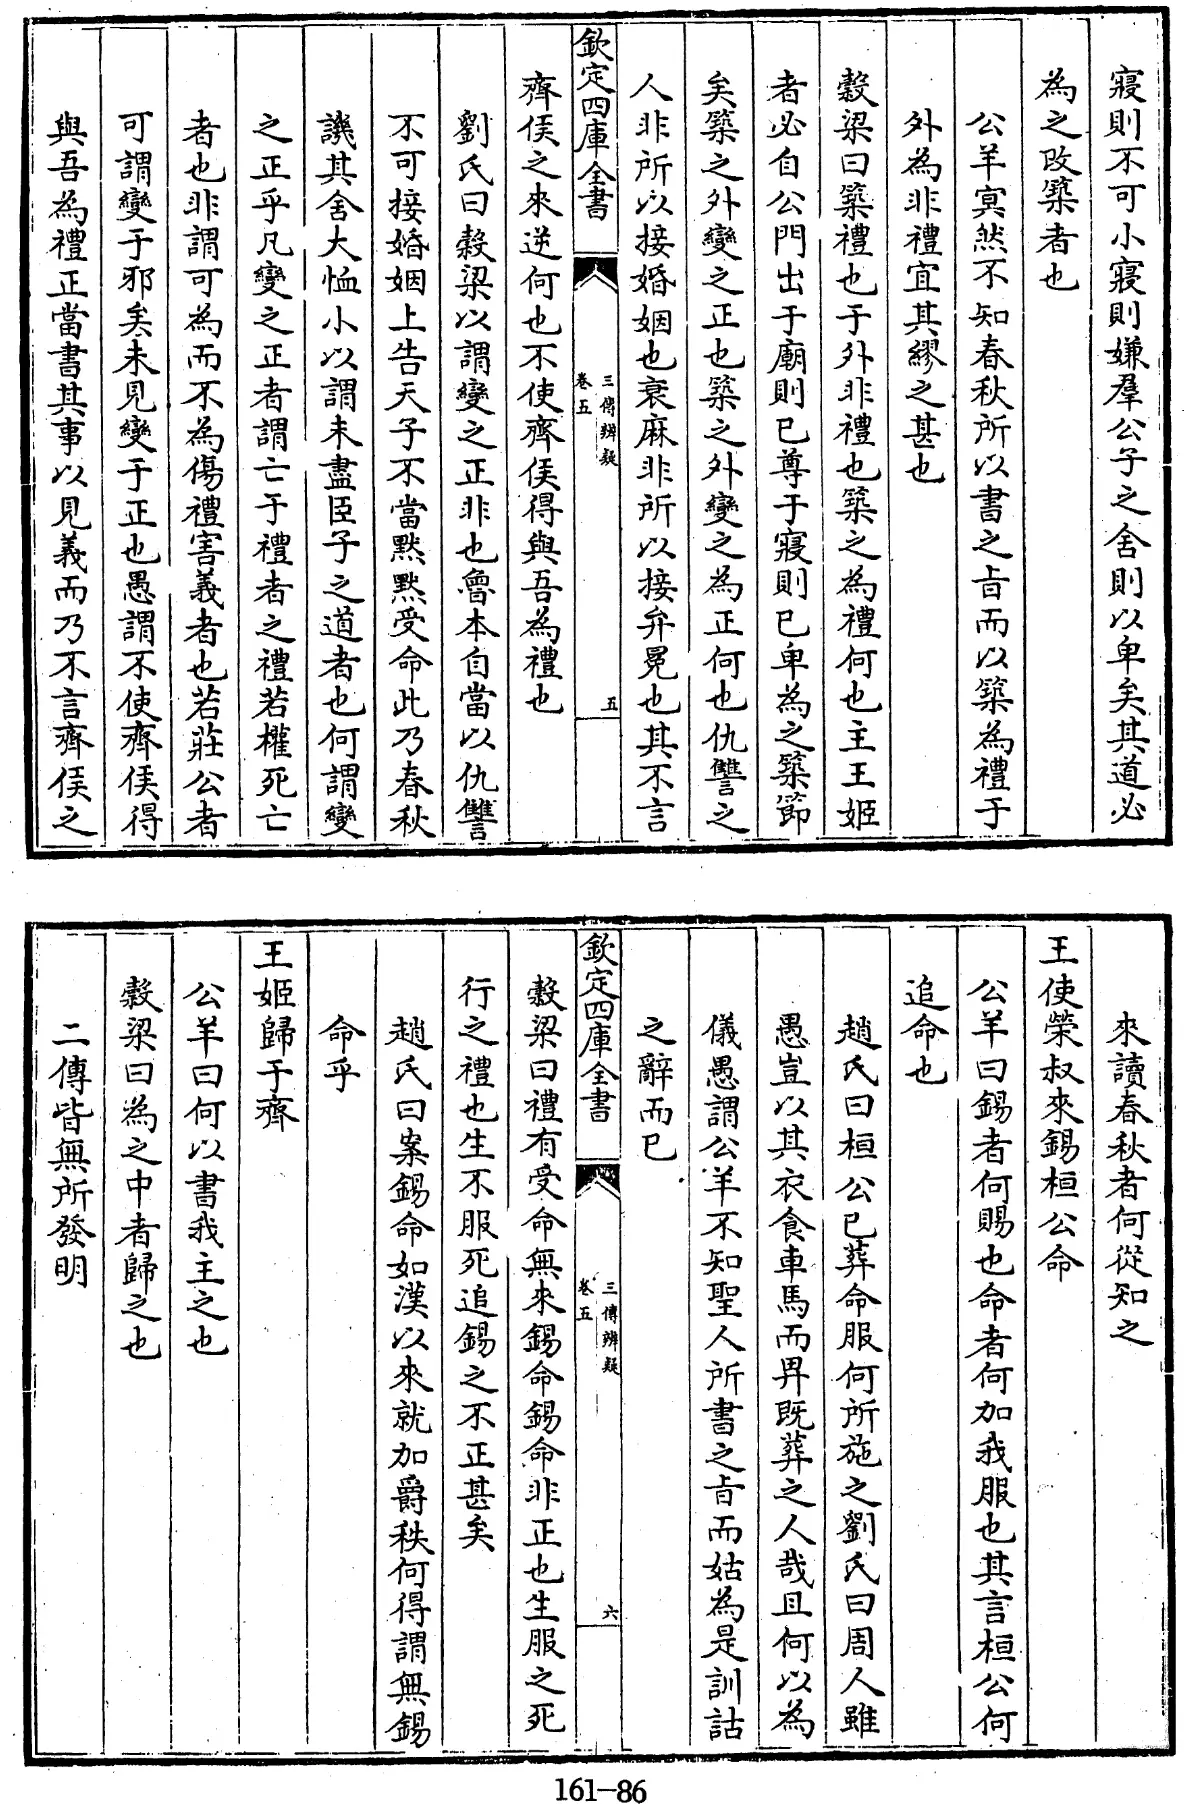 寢則不可小寢則嫌羣公子之舍則以卑矣其道必
為之改築者也
公羊冥然不知春秋所以書之㫖而以築為禮于
外為非禮宜其繆之甚也
穀梁曰築禮也于外非禮也築之為禮何也主王姬
者必自公門出于廟則已尊于寢則已卑為之築節
矣築之外變之正也築之外變之為正何也仇讐之
人非所以接婚姻也衰麻非所以接弁冕也其不言
齊侯之來逆何也不使齊侯得與吾為禮也
欽定四庫全書
三傳辨疑
卷五
五
劉氏曰穀梁以謂變之正非也魯本自當以仇讐
不可接婚姻上告天子不當黙黙受命此乃春秋
譏其舍大恤小以謂未盡臣子之道者也何謂變
之正乎凡變之正者謂亡于禮者之禮若權死亡
者也非謂可為而不為傷禮害義者也若莊公者
可謂變于邪矣未見變于正也愚謂不使齊侯得
與吾為禮正當書其事以見義而乃不言齊侯之
來讀春秋者何從知之
王使榮叔來錫桓公命
公羊曰錫者何賜也命者何加我服也其言桓公何
追命也
趙氏曰桓公已葬命服何所施之劉氏曰周人雖
愚豈以其衣食車馬而畀既葬之人哉且何以為
儀愚謂公羊不知聖人所書之㫖而姑為是訓詁
之辭而已
欽定四庫全書
三傳辨疑
卷五
六
穀梁曰禮有受命無來錫命錫命非正也生服之死
行之禮也生不服死追錫之不正甚矣
趙氏曰案錫命如漢以來就加爵秩何得謂無錫
命乎
王姬歸于齊
公羊曰何以書我主之也
穀梁曰為之中者歸之也
二傳皆無所發明
161-86